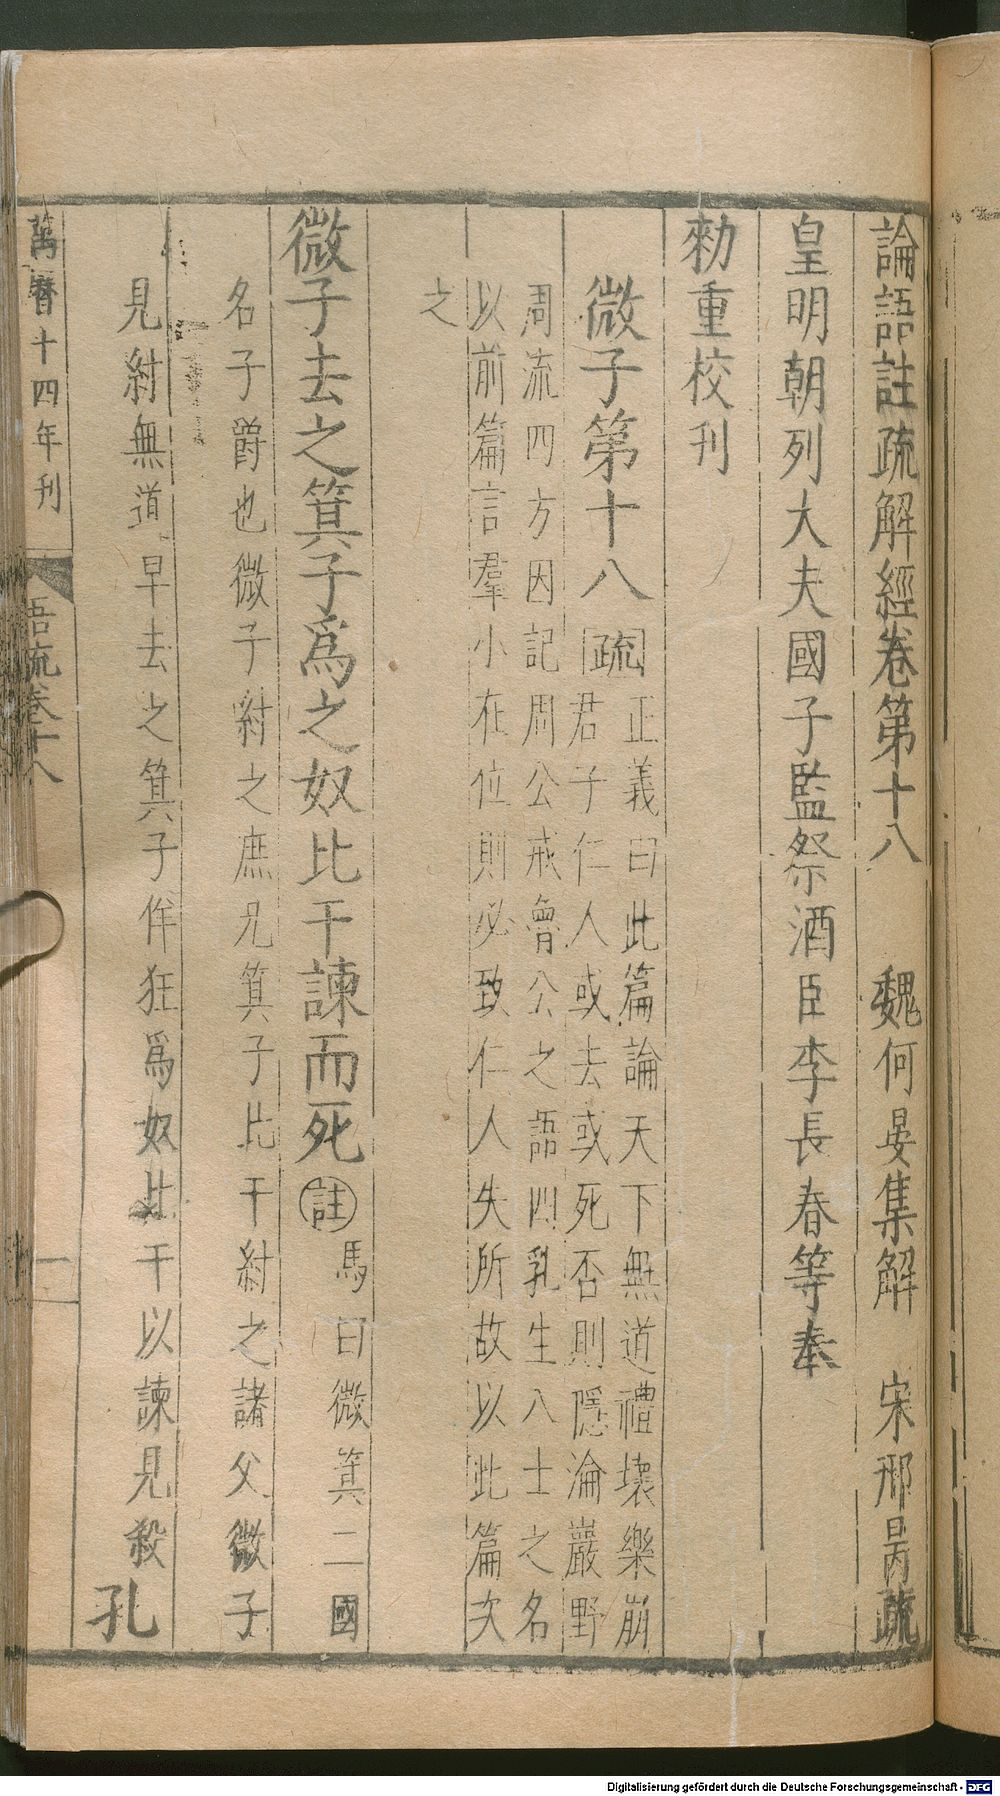 論語註疏解經卷第十八　魏何晏集解　宋邢昺疏
皇明朝列大夫國子監祭酒臣李長春等奉
勑重校刊
微子第十八 疏 正義曰此篇論天下無道禮壞樂崩
君子仁人或去或死否則隱淪巖野
周流四方因記周公戒魯公之語四乳生八士之名
以前篇言羣小在位則必致仁人失所故以此篇次
之
微子去之箕子爲之奴比干諫而死 註 馬曰微箕二國
名子爵也微子紂之庶兄箕子比干紂之諸父微子
見紂無道早去之箕子佯狂爲奴比干以諫見殺 孔
萬曆十四年刊
吾流卷十八
一
Digitalisierung gefördert durch die Deutsche Forschungsgemeinschaft - DFG